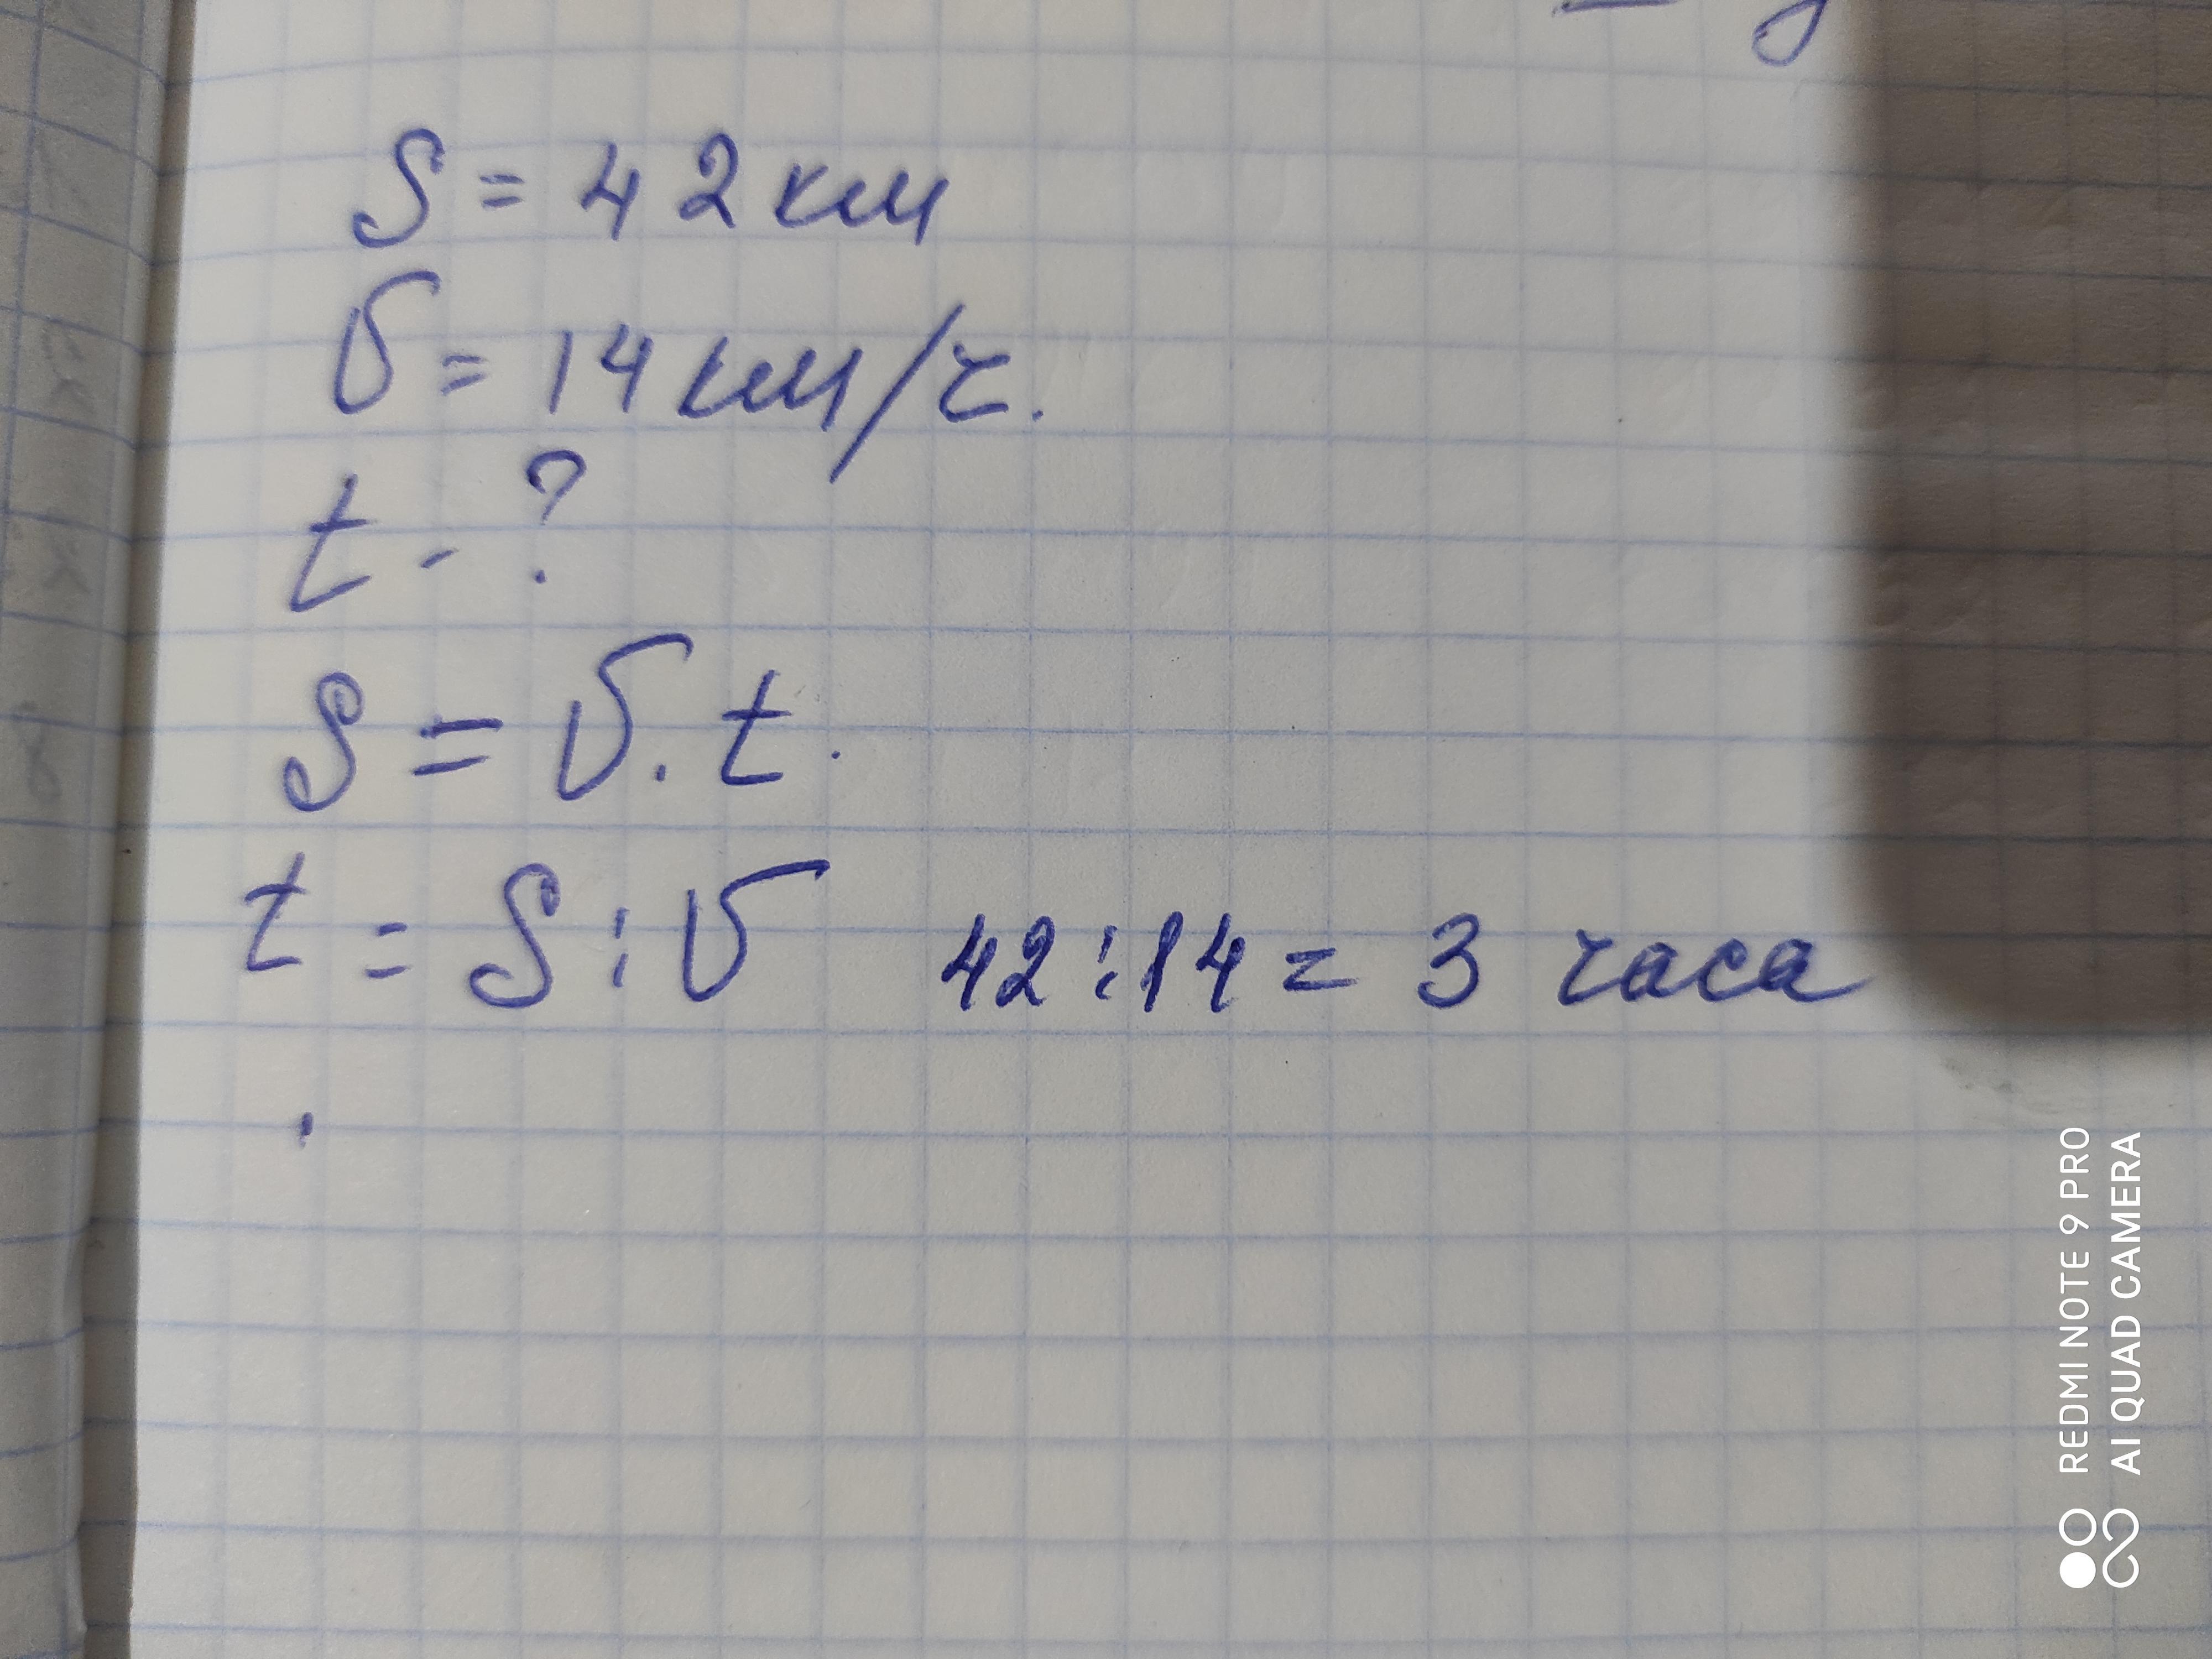 S = 42 км
V = 14 км/ч.
t - ?
S = V . t .
t = S : V 42 : 14 = 3 часа
REDMI NOTE 9 PRO
AI QUAD CAMERA